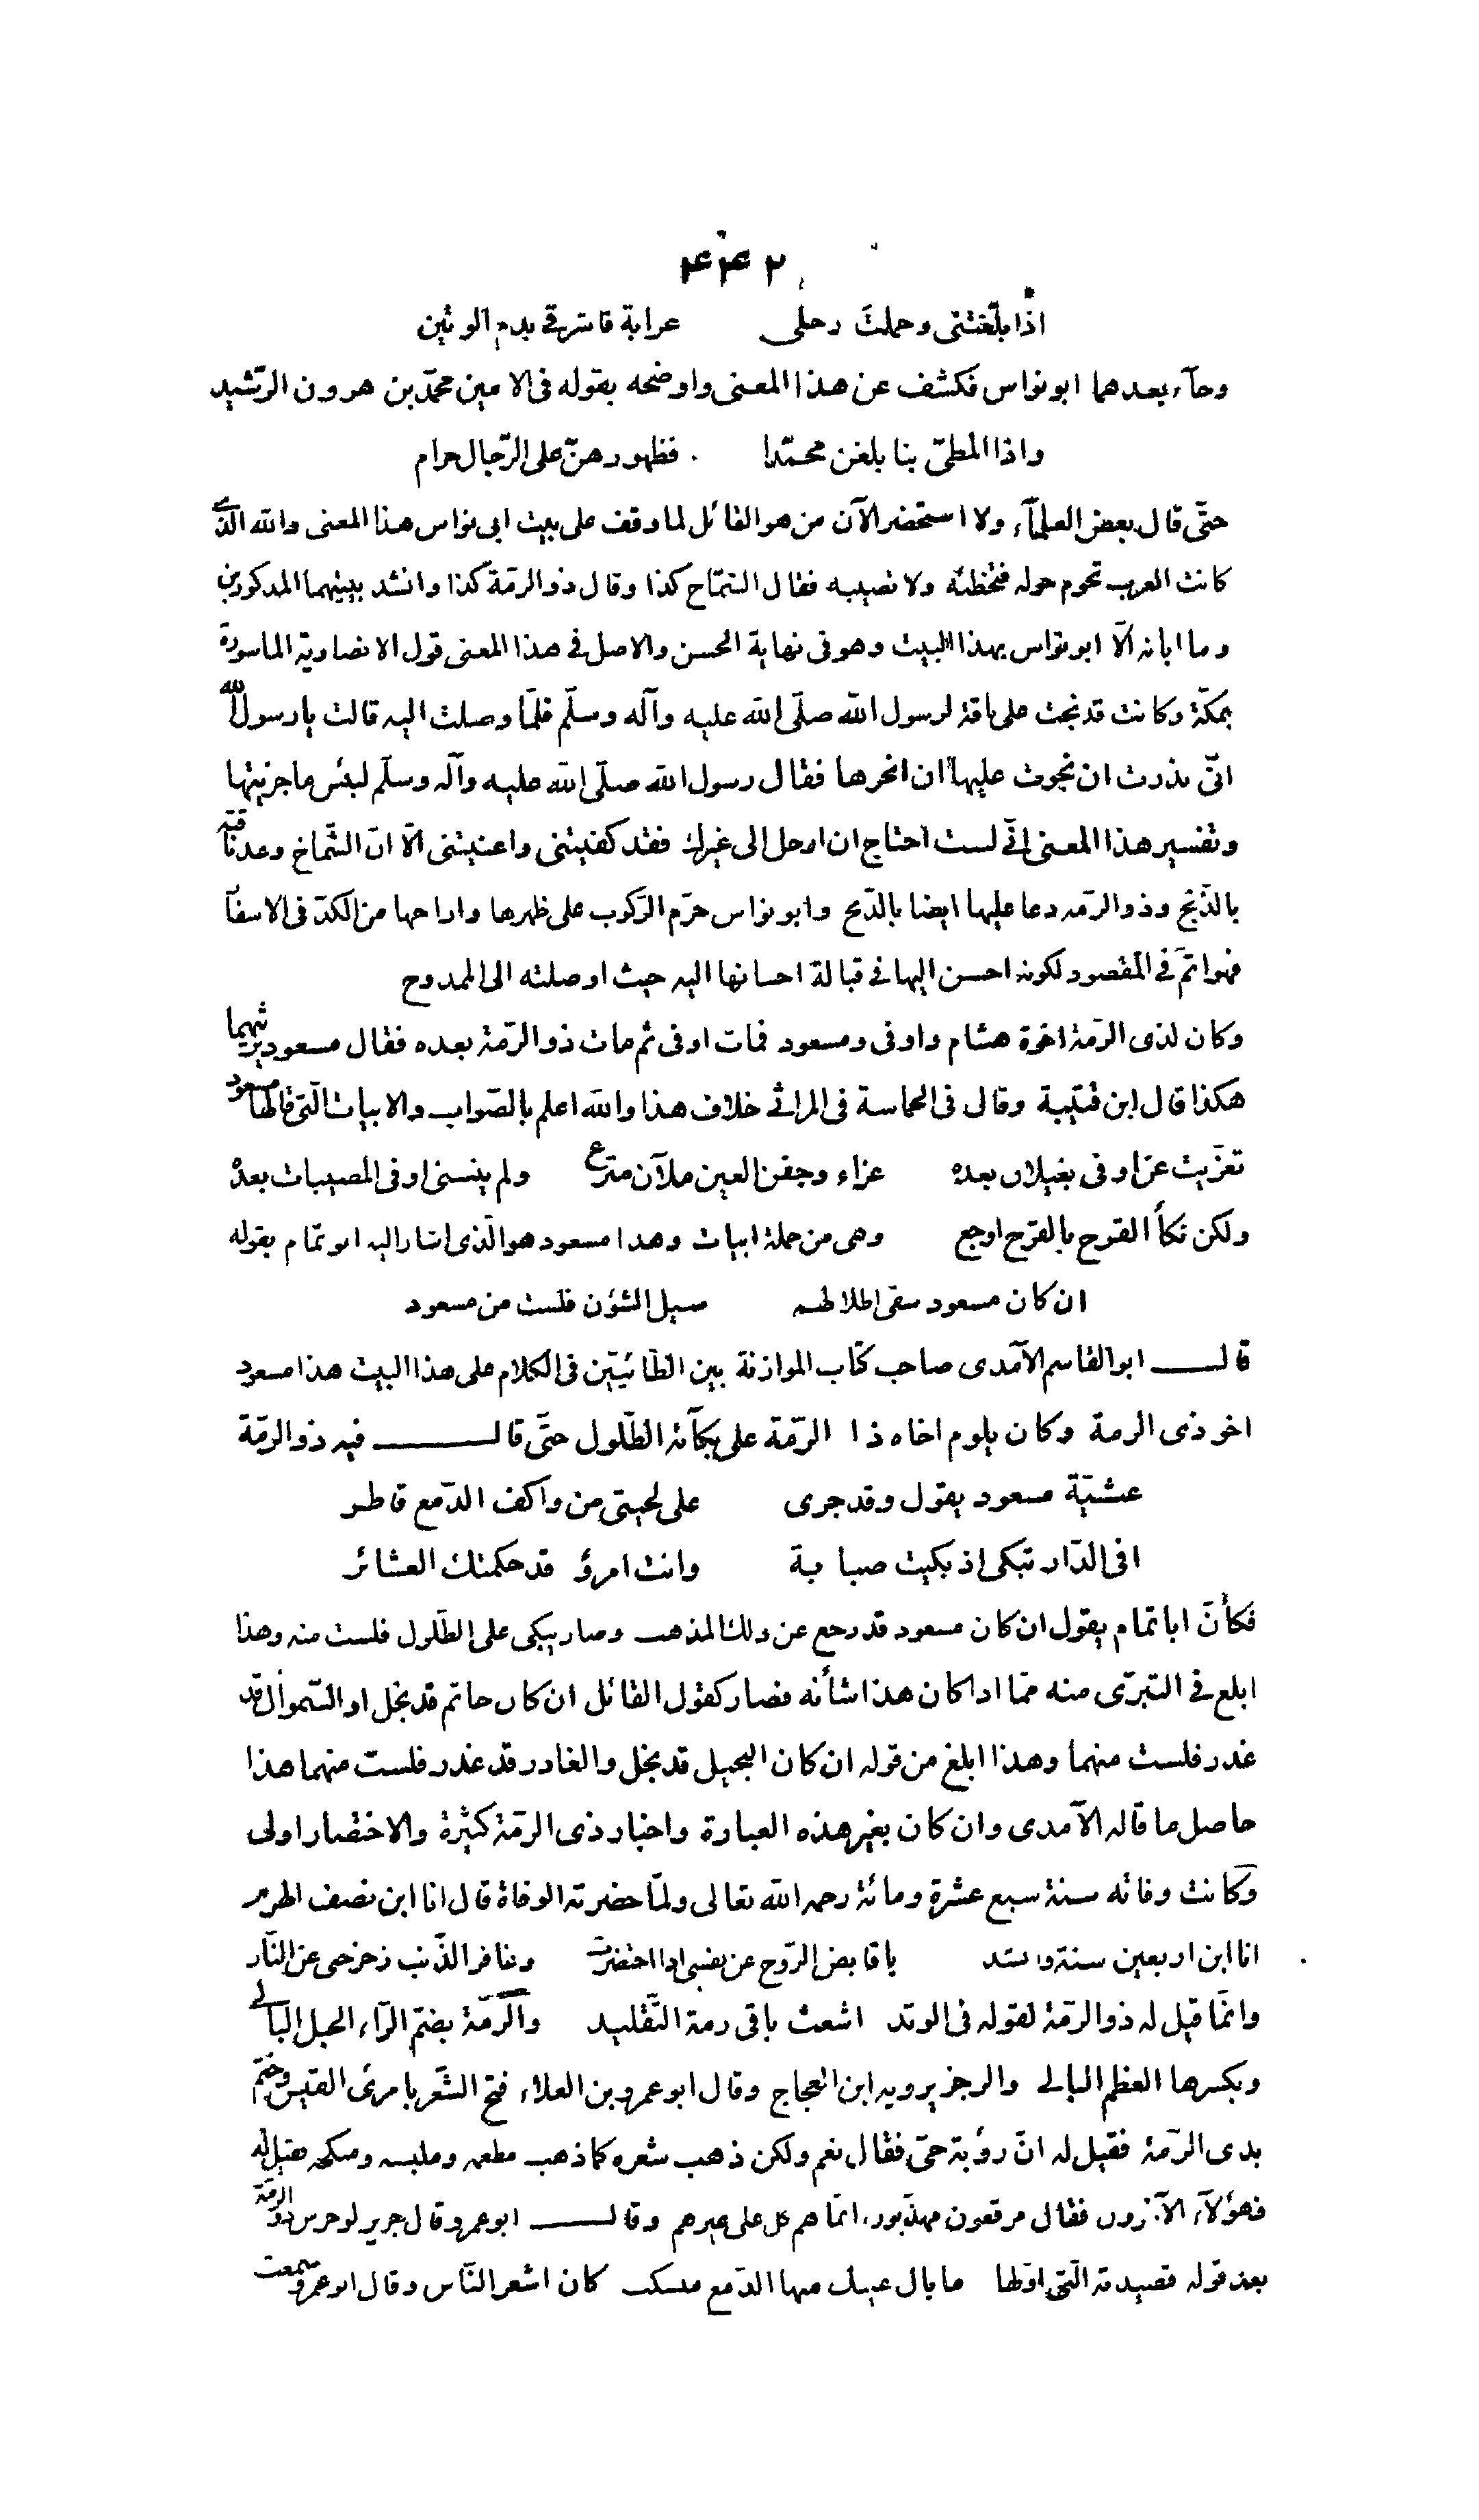 ۴۴۲
اذا بلّغتنى وحملت رحلى عرابة فاشرقى بدم الوتين
وجآء بعدهما ابو نواس فكشف عن هذا المعنى واوضحه بقوله فى الامين محمّد بن هرون الرّشيد
واذا المطىّ بنا بلغن محمّدا فظهورهنّ على الرّجال حرام
حتّى قال بعض العلمآء ولا استحضر الآن من هو القائل لما وقف على بيت ابى نواس هذا المعنى والله الّذى
كانت العرب تحوم حوله فتخطئه ولا تصيبه فقال الشمّاخ كذا وقال ذو الرمّة كذا وانشد بيتيهما المذكورين
وما ابانه الّا ابو نواس بهذا البيت وهو فى نهاية الحسن والاصل فى هذا المعنى قول الانصارية الماسورة
بمكّة وكانت قد نجت على ناقة لرسول الله صلّى الله عليه وآله وسلّم فلمّا وصلت اليه قالت يا رسول الله
انّى نذرت ان نجوت عليها ان انحرها فقال رسول الله صلّى الله عليه وآله وسلّم لبئس ما جزيتها
وتفسير هذا المعنى انّى لست احتاج ان ارحل الى غيرك فقد كفيتنى واغنيتنى الّا انّ الشّمّاخ وعد ناقته
بالذّبح وذو الرمّه دعا عليها ايضا بالذّبح وابو نواس حرّم الرّكوب على ظهرها واراحها من الكدّ فى الاسفا
فهو اتمّ فى المقصود لكونه احسن اليها فى قبالة احسانها اليه حيث اوصلته الى الممدوح
وكان لذى الرمّة اخوة هشام واوفى ومسعود فمات اوفى ثم مات ذو الرمّة بعده فقال مسعود يرثيهما
هكذا قال ابن قتيبة وقال فى الحماسة فى المراثى خلاف هذا والله اعلم بالصّواب والابيات الّتى قالها مسعود
تعزّيت عن اوفى بغيلان بعده عزاء وجفن العين ملآن مترع ولم ينسنى اوفى المصيبات بعده
ولكن نكأ القرح بالقرح اوجع وهى من جملة ابيات وهذا مسعود هو الّذى اشار اليه ابو تمّام بقوله
ان كان مسعود سقى اطلالهم سبل الشؤن فلست من مسعود
قال ابو القاسم الآمدى صاحب كتاب الموازنة بين الطّائيّين فى الكلام على هذا البيت هذا مسعود
اخو ذى الرمة وكان يلوم اخاه ذا الرّمّة على بكآئه الطّلول حتّى قال فيه ذو الرمّة
عشيّة مسعود يقول وقد جرى على لحيتى من واكف الدّمع قاطر
افى الدّار تبكى اذ بكيت صبابة وانت امرؤ قد حكمتك العشائر
فكأنّ ابا تمام يقول ان كان مسعود قد رجع عن ذلك المذهب وصار يبكى على الطّلول فلست منه وهذا
ابلغ فى التبرّى منه ممّا اذا كان هذا شأنه فصار كقول القائل ان كان حاتم قد بخل او السّموأل قد
غدر فلست منهما وهذا ابلغ من قوله ان كان البخيل قد بخل والغادر قد غدر فلست منهما هذا
حاصل ما قاله الآمدى وان كان بغير هذه العبارة واخبار ذى الرمّة كثيرة والاختصار اولى
وكانت وفاته سنة سبع عشرة ومائة رحمه الله تعالى ولمّا حضرته الوفاة قال انا ابن نصف الهرم
انا ابن اربعين سنة وانشد يا قابض الرّوح عن نفسى اذا احتضرت وغافر الذّنب زحزحى عن النّار
وانّما قيل له ذو الرمّة لقوله فى الوتد اشعث باقى رمة التّقليد والرّمّة بضمّ الرّآء الحبل البالى
وبكسرها العظم البالى والرجز يرويه ابن العجاج وقال ابو عمرو بن العلاء فتح الشّعر بامرئ القيس وختم
بذى الرّمّة فقيل له انّ رؤبة حىّ فقال نعم ولكن ذهب شعره كما ذهب مطعمه وملبسه ومنكحه فقيل له
فهؤلآء الآخرون فقال مرقعون مهذّبون انّما هم كل على غيرهم وقال ابو عمرو قال جرير لو خرس ذو الرمّة
بعد قوله قصيدته الّتى اوّلها ما بال عينك منها الدّمع ينسكب كان اشعر النّاس وقال ابو عمرو سمعت